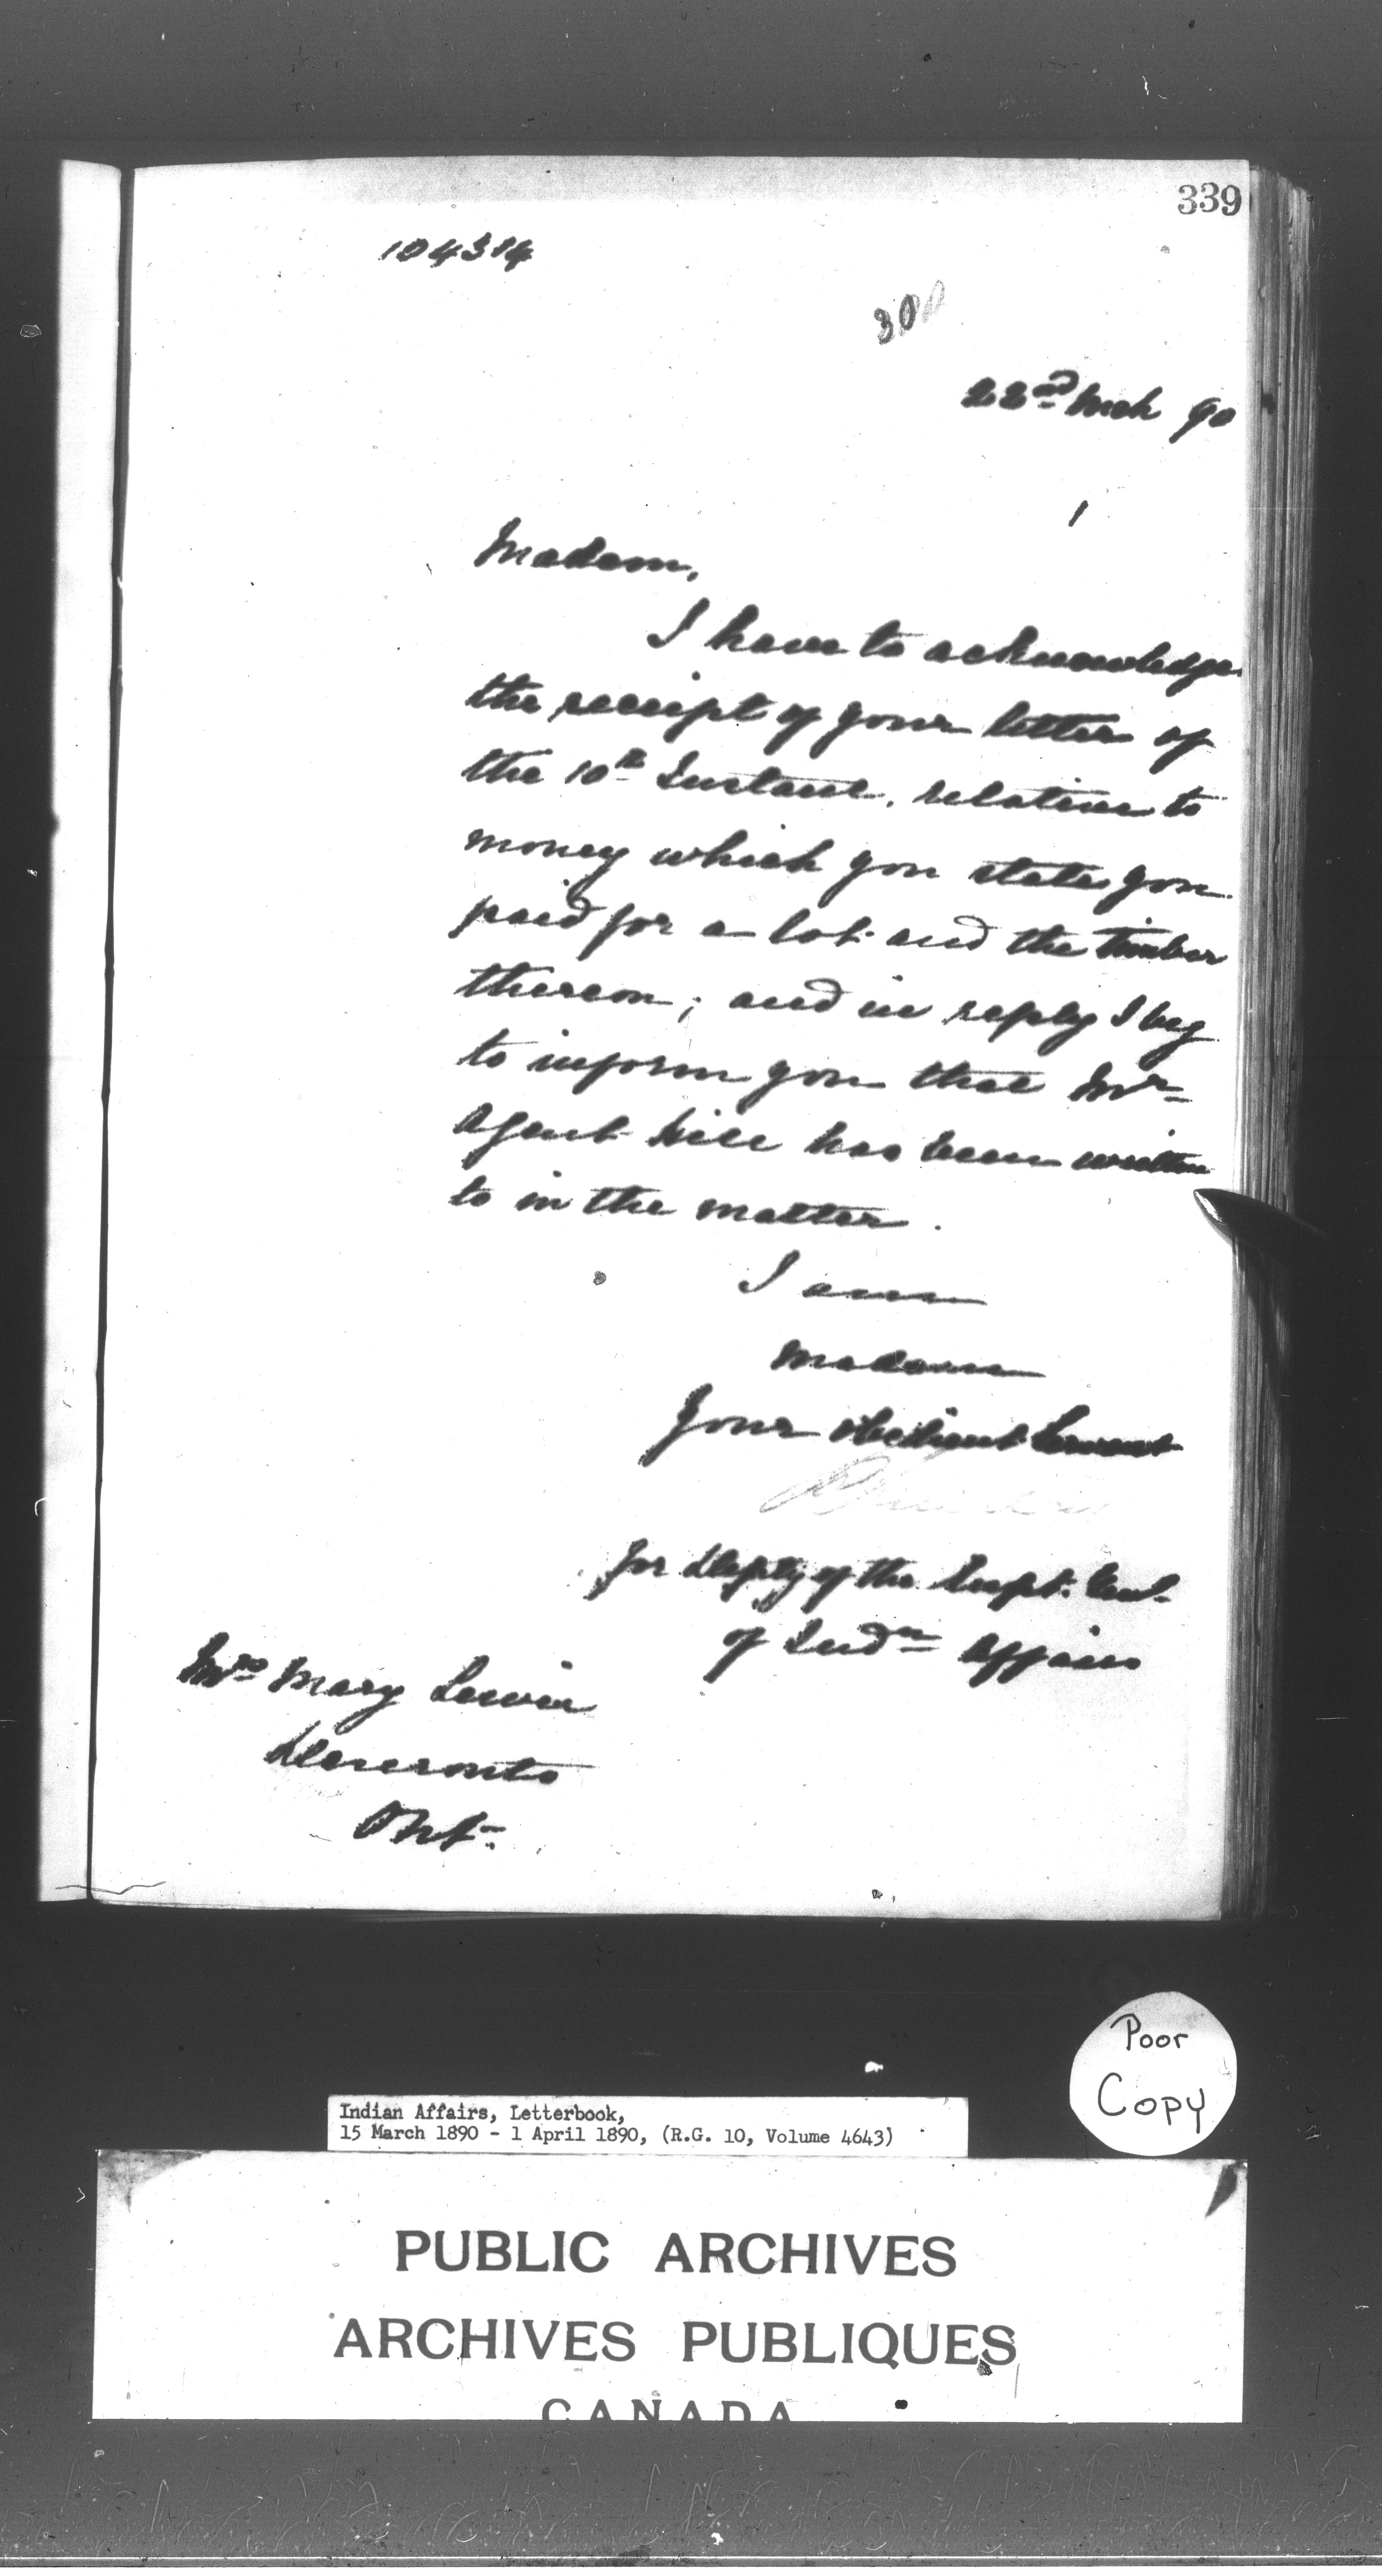 339
104314
300
22nd Mch 90
Madam,
I have to acknowledge
the receipt of your letter of
the 10th Instant, relative to
money which you state you
paid for a lot and the timber
thereon; and in reply I beg
to inform you that Mr
Agent Hill has been written
to in the matter.
I am
Madam
Your obedient Servant
for Depty of the Supt. Genl.
of Indn Affairs
Mrs Mary
Deseronto
Ont.
Poor
Copy
Indian Affairs, Letterbook,
15 March 1890 - 1 April 1890, (R.G. 10, Volume 4643)
PUBLIC ARCHIVES
ARCHIVES PUBLIQUES
CANADA